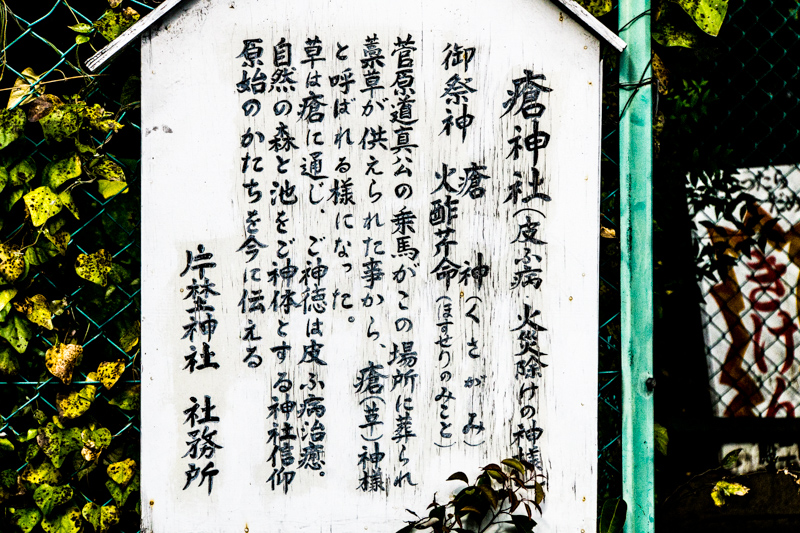 瘡神社(皮ふ病・火災除けの神様
御祭神
瘡神(くさがみ)
火酢芹命(ほすせりのみこと)
菅原道真公の乗馬がこの場所に葬られ
藁草が供えられた事から、瘡(草)神様
と呼ばれる様になった。
草は瘡に通じ、ご神徳は皮ふ病治癒。
自然の森と池をご神体とする神社信仰
原始のかたちを今に伝える
片埜神社 社務所
きけん